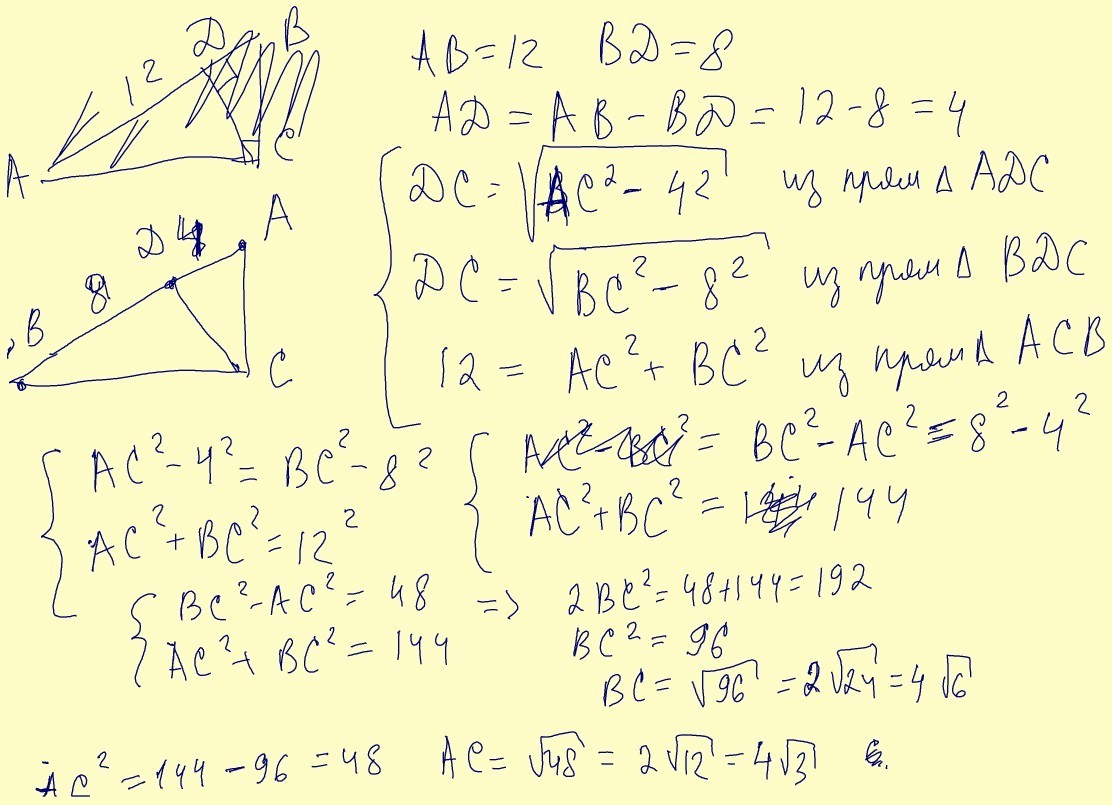 D B
12
A C
AB = 12 BD = 8
AD = AB - BD = 12 - 8 = 4
DC = √(AC² - 4²) из прям Δ ADC
D 4 A
8
B
C
DC = √(BC² - 8²) из прям Δ BDC
12 = AC² + BC² из прям Δ ACB
AC² - 4² = BC² - 8²
AC² + BC² = 12²
AC² - BC² = BC² - AC² = 8² - 4²
AC² + BC² = 144
BC² - AC² = 48 => 2BC² = 48 + 144 = 192
AC² + BC² = 144
BC² = 96
BC = √96 = 2√24 = 4√6
AC² = 144 - 96 = 48 AC = √48 = 2√12 = 4√3